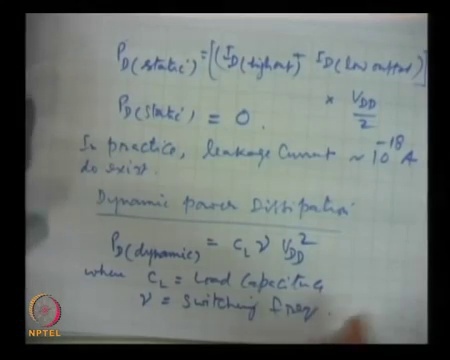 P_D(static) = [(I_D(high out) + I_D(low output)]
× V_DD/2
P_D(static) = 0.
In practice, leakage current ~ 10^-18 A
do exist.
Dynamic power Dissipation
P_D(dynamic) = C_L ν V_DD^2
where C_L = Load Capacitance
ν = Switching freq.
NPTEL